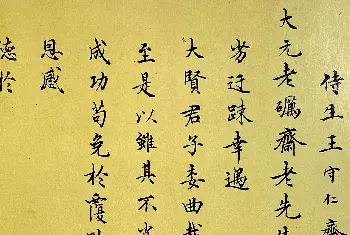 侍生王守仁齋
大元老礪齋老先生
劣迂踈幸遇
大賢君子委曲裁
至是以雖其不肖
成功苟免於覆
恩感
德於